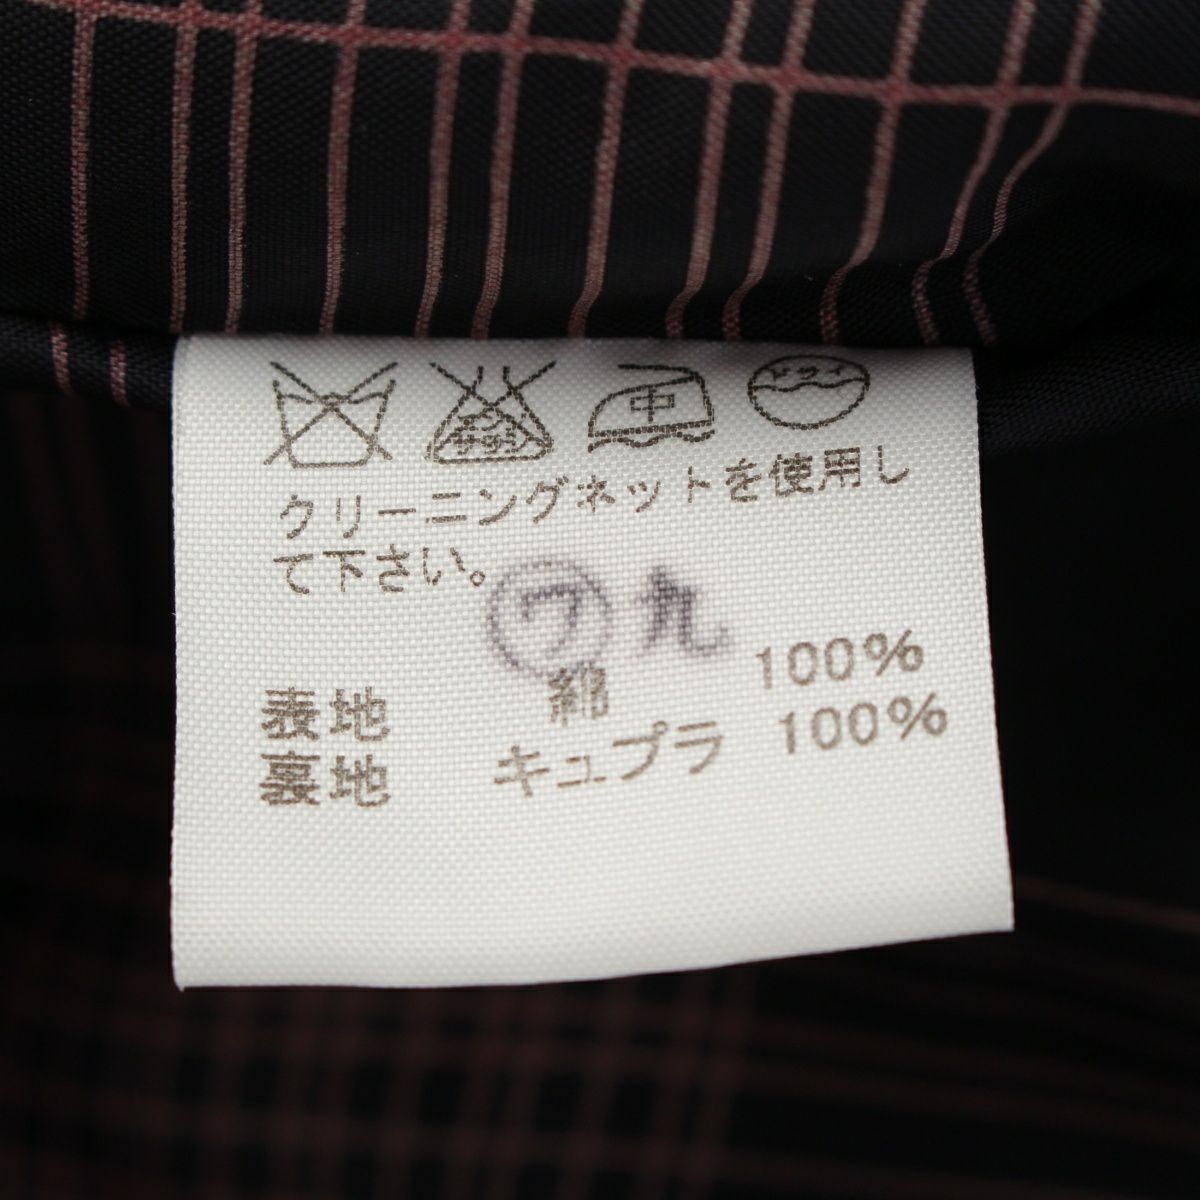 エンソサラシ 中 ドライ
クリーニングネットを使用し
て下さい。
ワ 丸
表地 綿 100%
裏地 キュプラ 100%